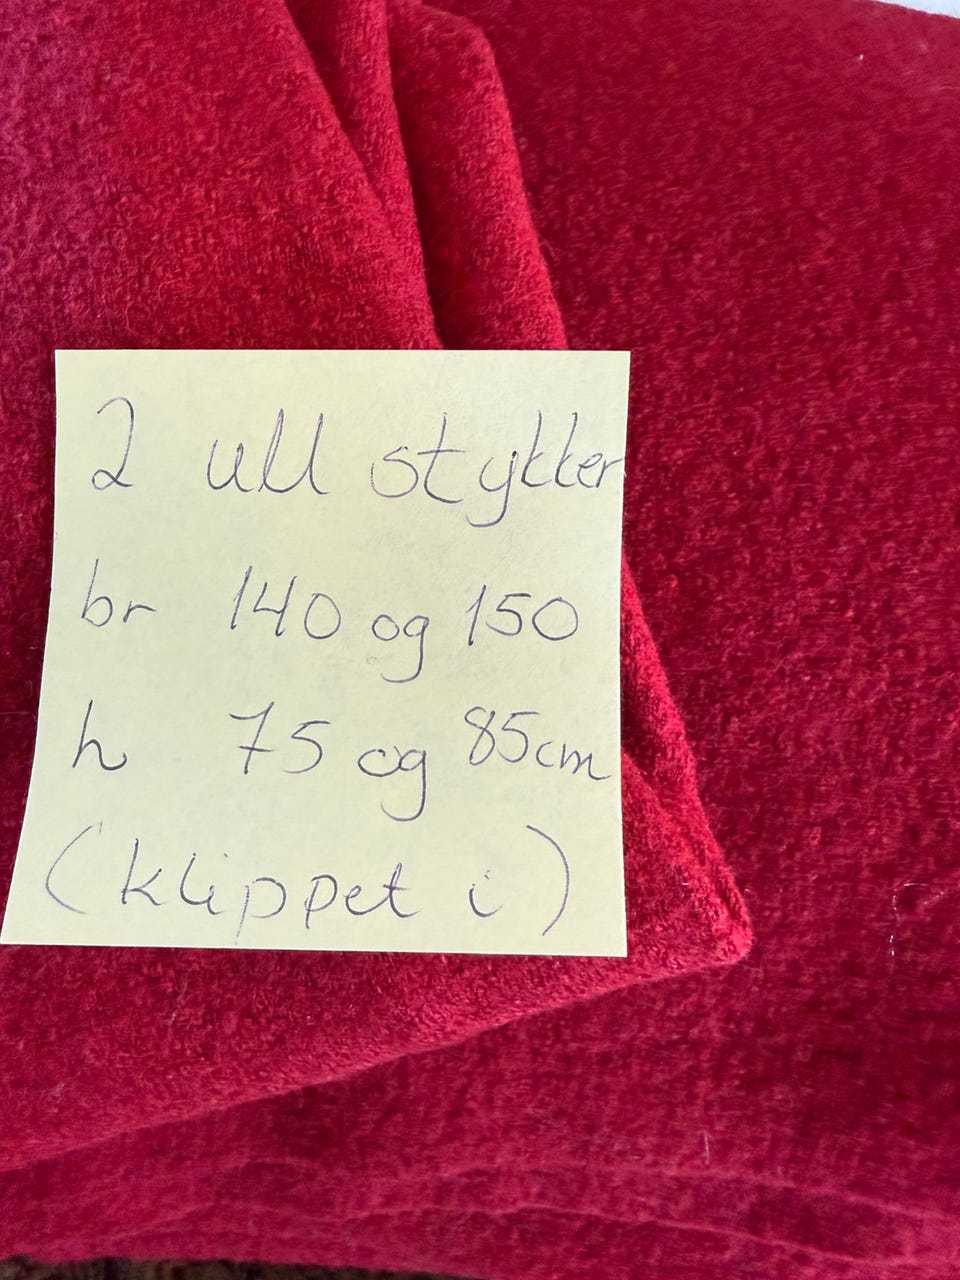 2 ull stykker
br 140 og 150
h 75 og 85cm
(klippet i)